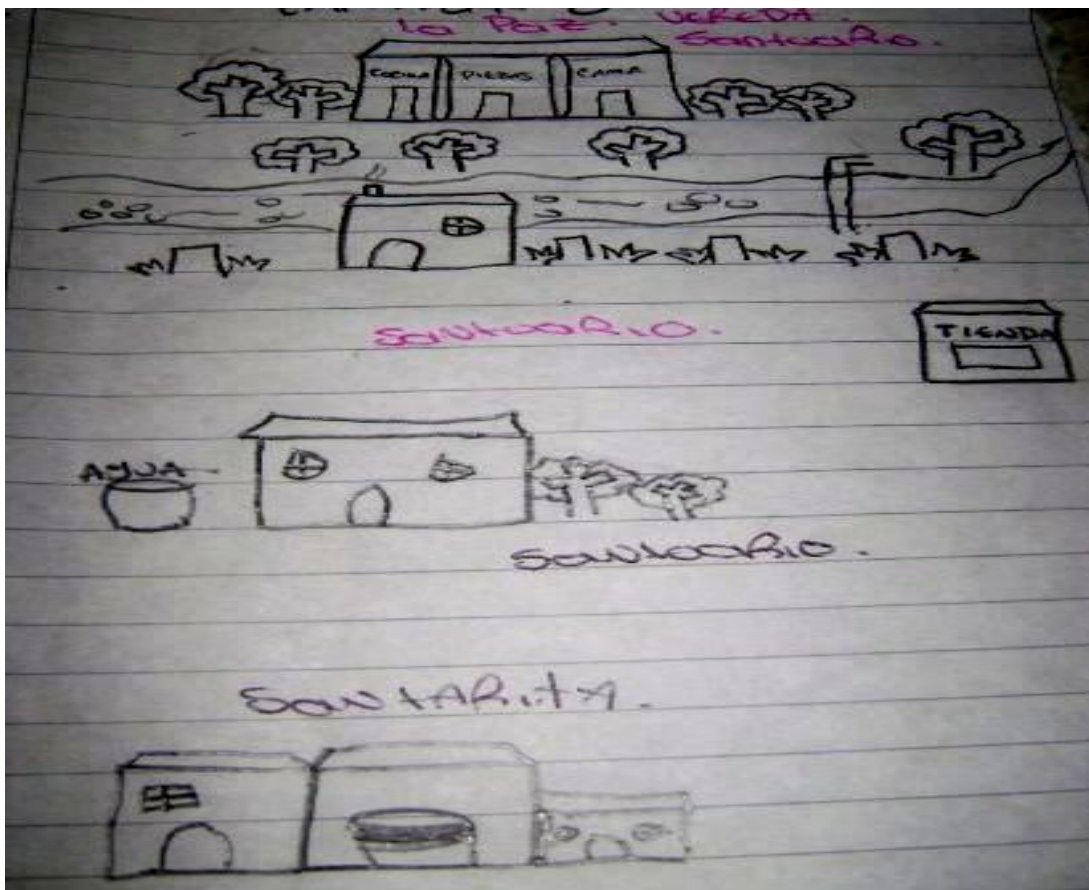 La Paz. VEREDA.
Santuario.
COCINA PIEZAS CAMA
SantuaRio.
TIENDA
AgUA
SantuaRio.
SantARitA.